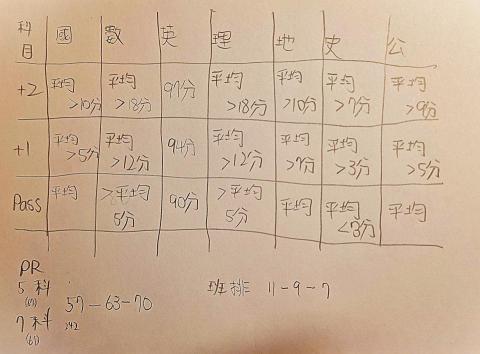 科目 國 數 英 理 地 史 公
+2 平均>10分 平均>18分 97分 平均>18分 平均>10分 平均>7分 平均>9分
+1 平均>5分 平均>12分 94分 平均>12分 平均>7分 平均>3分 平均>5分
Pass 平均 >平均5分 90分 >平均5分 平均 平均<3分 平均
PR
5科 57-63-70 班排 11-9-7
7科